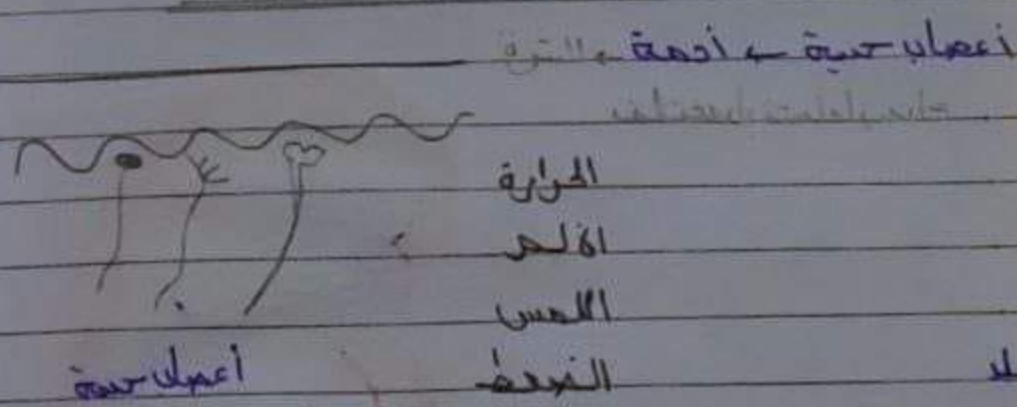 أعصاب حسية ← أدمة
الحرارة
الألم
اللمس
الضغط
أعصاب حسية